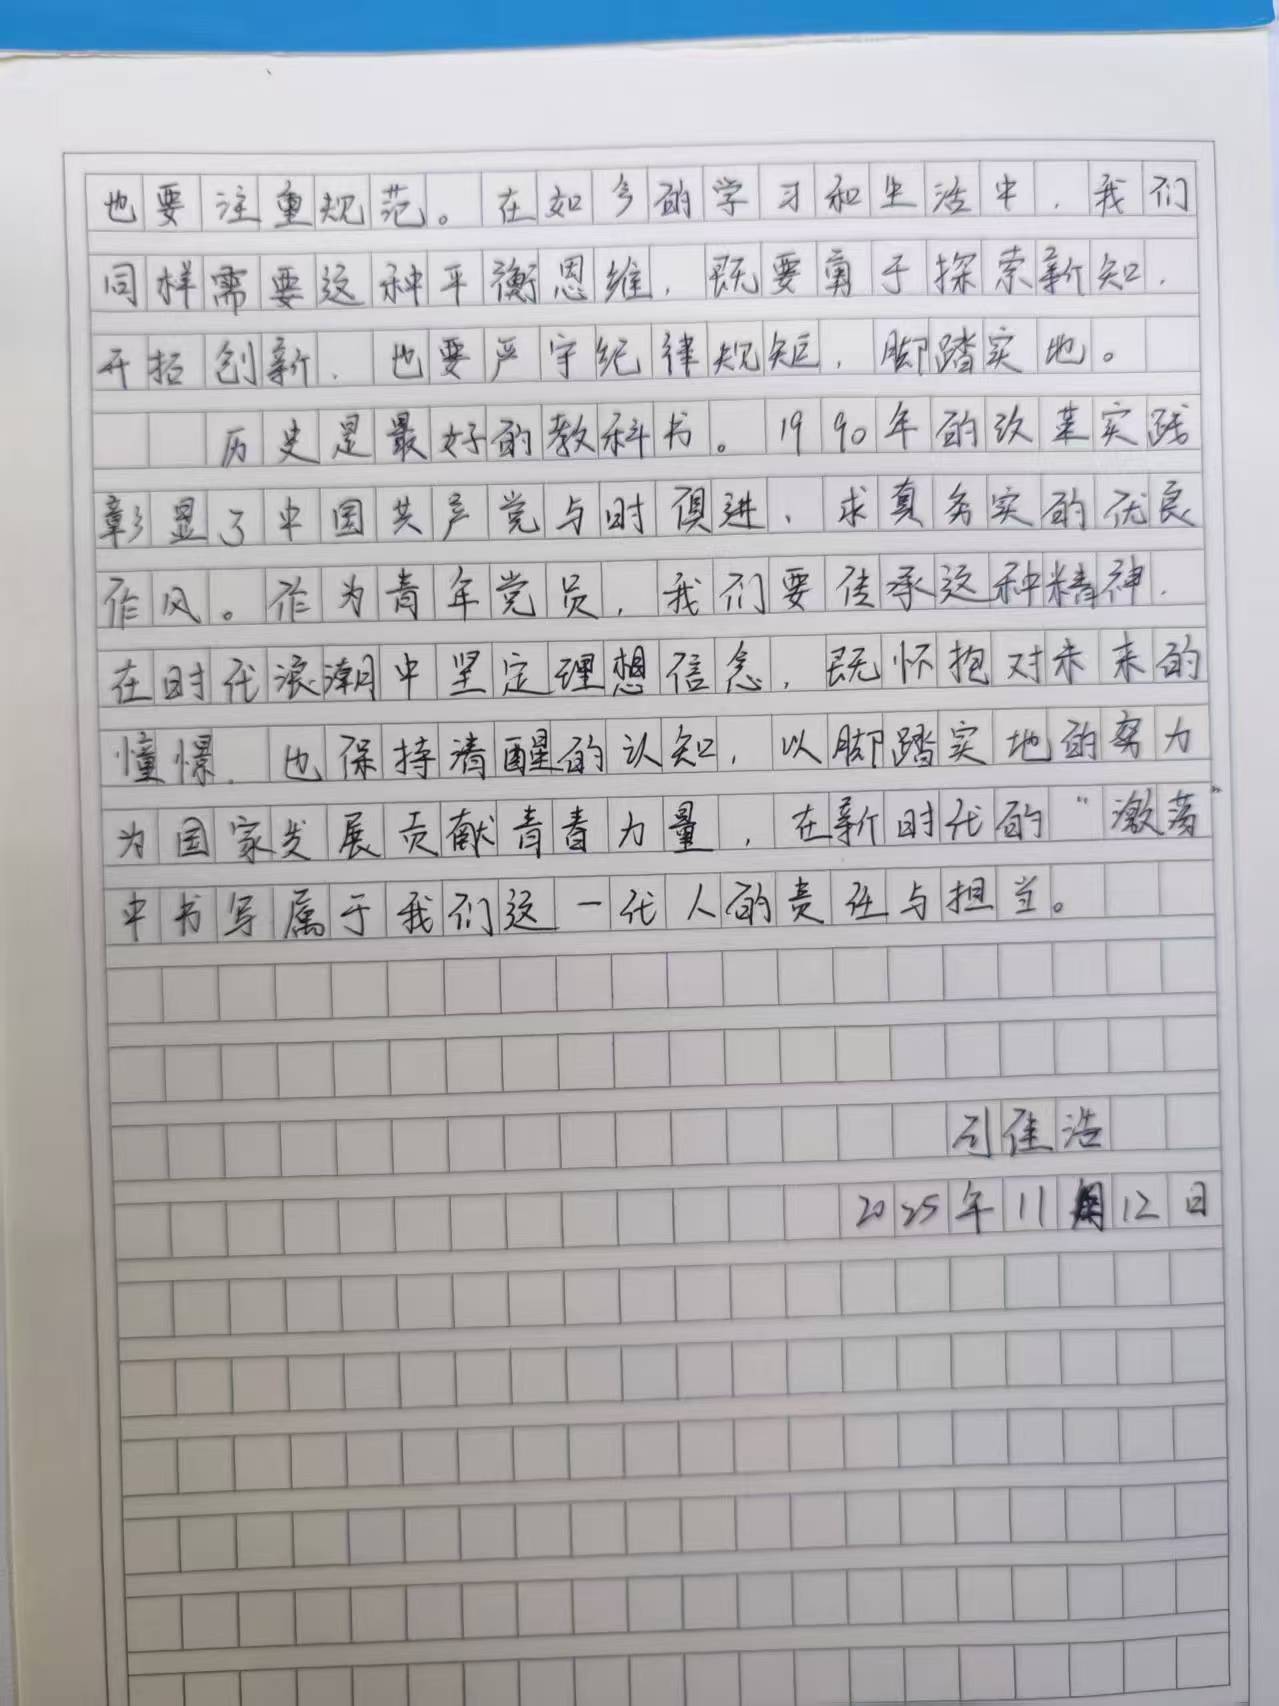 也要注重规范。在如今的学习和生活中,我们
同样需要这种平衡思维,既要勇于探索新知,
开拓创新,也要严守纪律规矩,脚踏实地。
历史是最好的教科书。1990年的改革实践
彰显了中国共产党与时俱进、求真务实的优良
作风。作为青年党员,我们要传承这种精神,
在时代浪潮中坚定理想信念,既怀抱对未来的
憧憬,也保持清醒的认知,以脚踏实地的努力
为国家发展贡献青春力量,在新时代的“激荡”
中书写属于我们这一代人的责任与担当。
佳浩
2025年11月12日